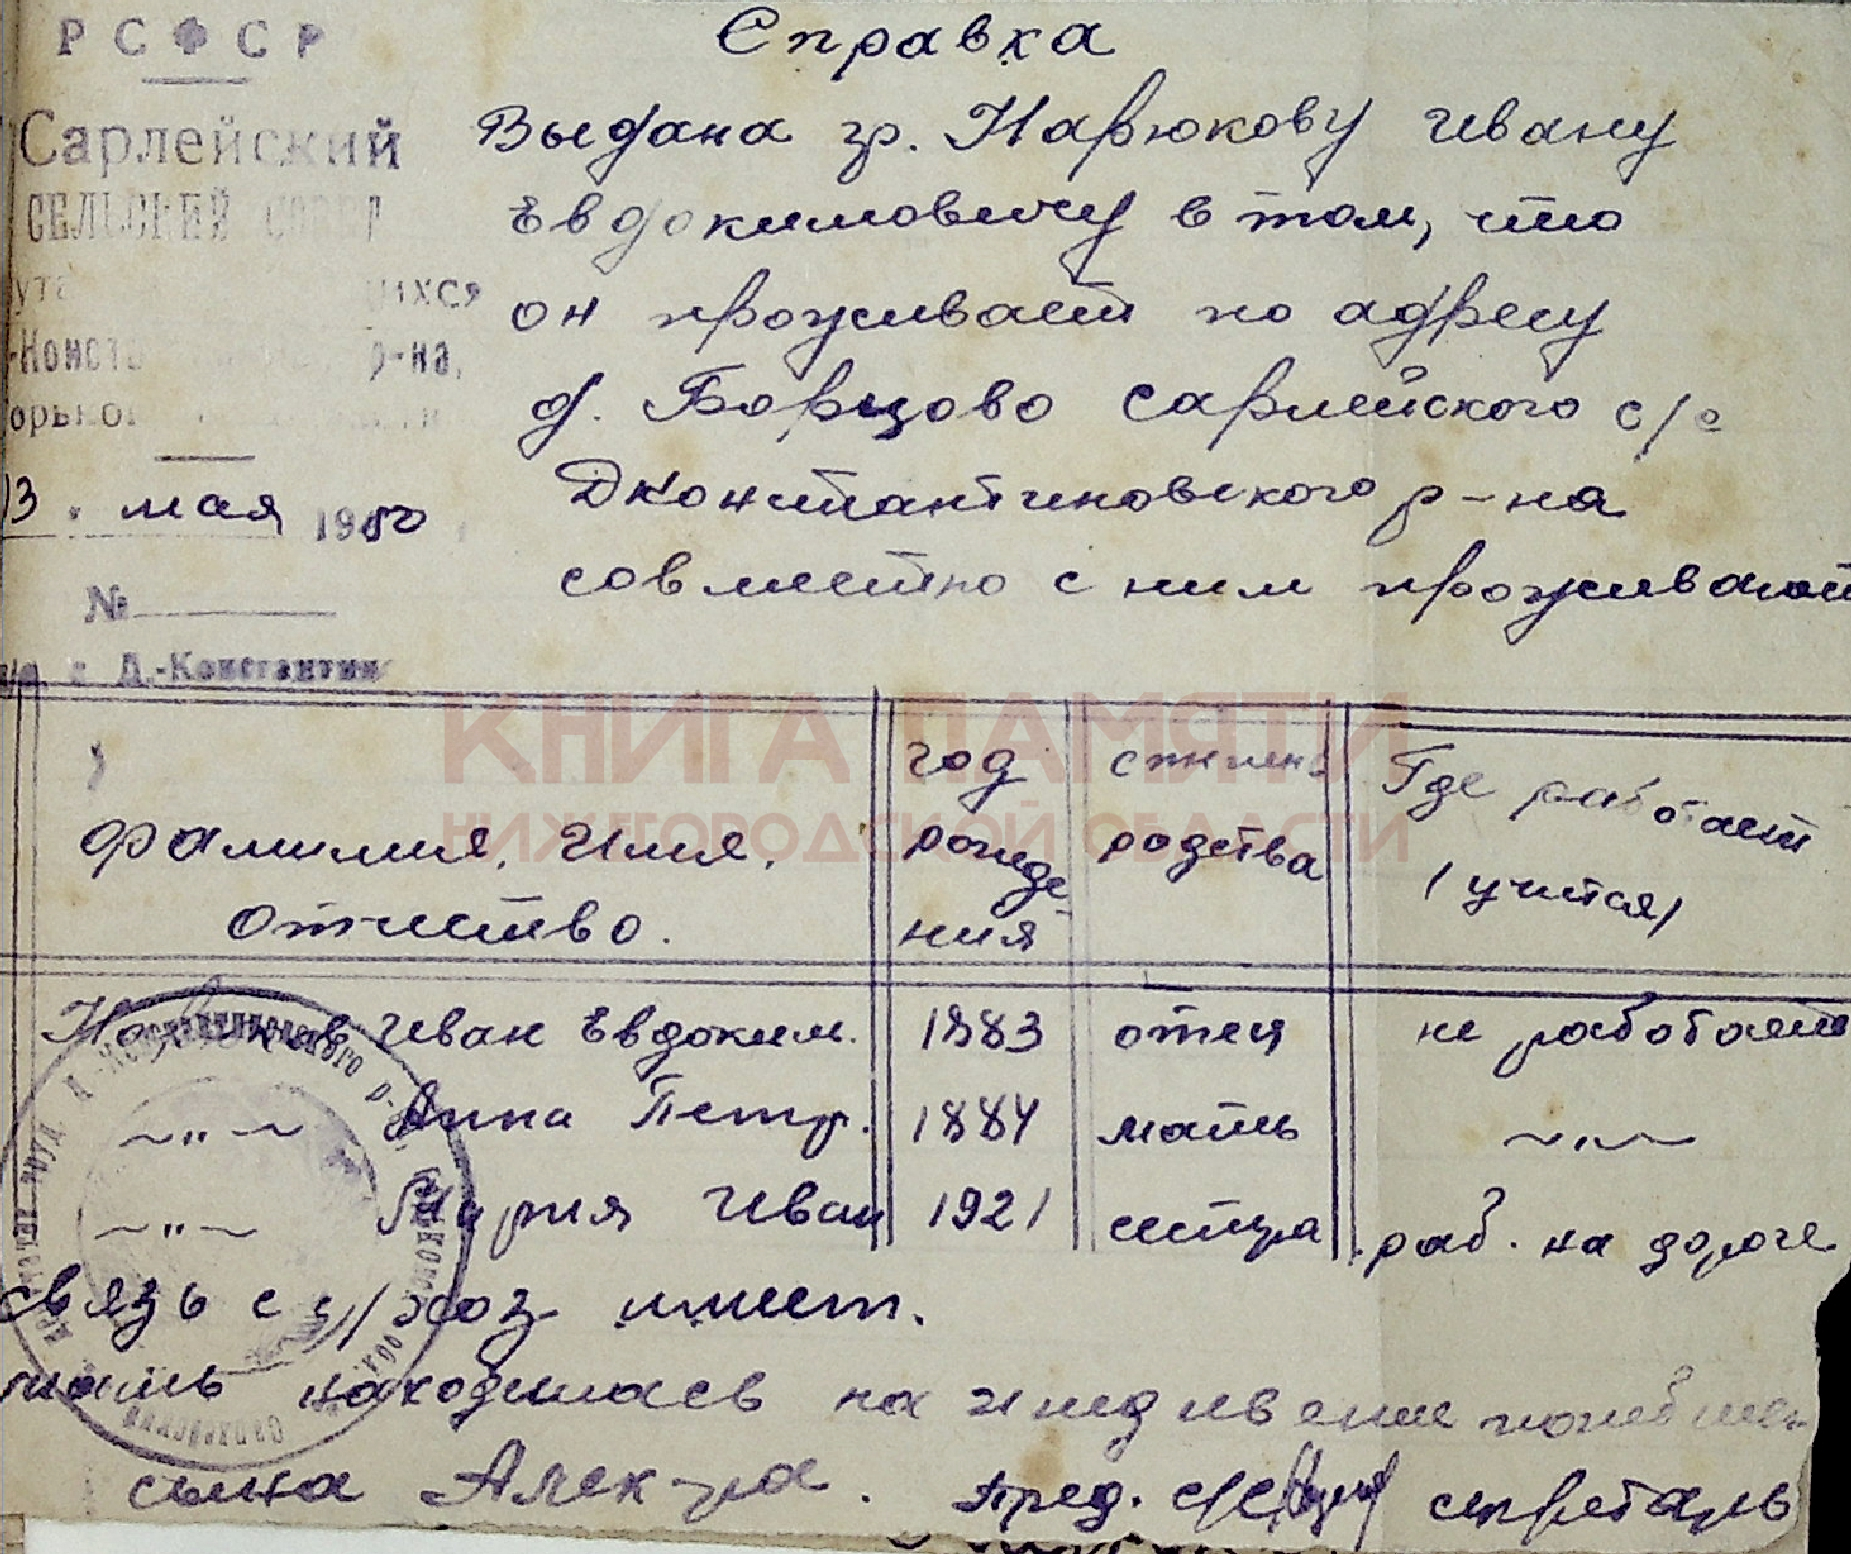 РСФСР
Сарлейский
СЕЛЬСКИЙ СОВЕТ
ихся
-Конст р-на,
орьког
13 . мая 1950
№
Д.-Константин
Справка
Выдана гр. Нарюкову Ивану
Евдокимовичу в том, что
он проживает по адресу
д. Борцово Сарлейского с/с
Дконстантиновского р-на
совместно с ним проживают
КНИГА ПАМЯТИ
НИЖЕГОРОДСКОЙ ОБЛАСТИ
фамилия, имя, отчество.
год рожде- ния
степень родства
Где работает (учится)
Нарюков Иван Евдоким. 1883 отец не работает
~"~ Анна Петр. 1884 мать ~"~
~"~ Мария Иван 1921 сестра раб. на дороге
связь с с/хоз имеет.
мать находилась на иждивении погибшего
сына Алек-ра. пред. с/с секретарь